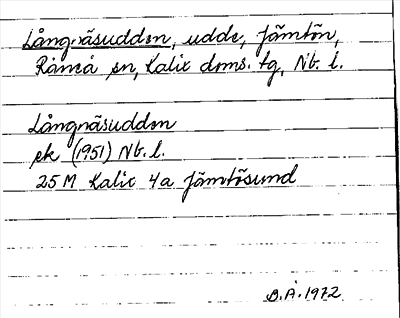 Långnäsudden, udde, Jämtön,
Råneå sn, Kalix doms. tg, Nb. l.
Långnäsudden
ek (1951) Nb. l.
25 M Kalix 4a Jämtösund
B.Å. 1972